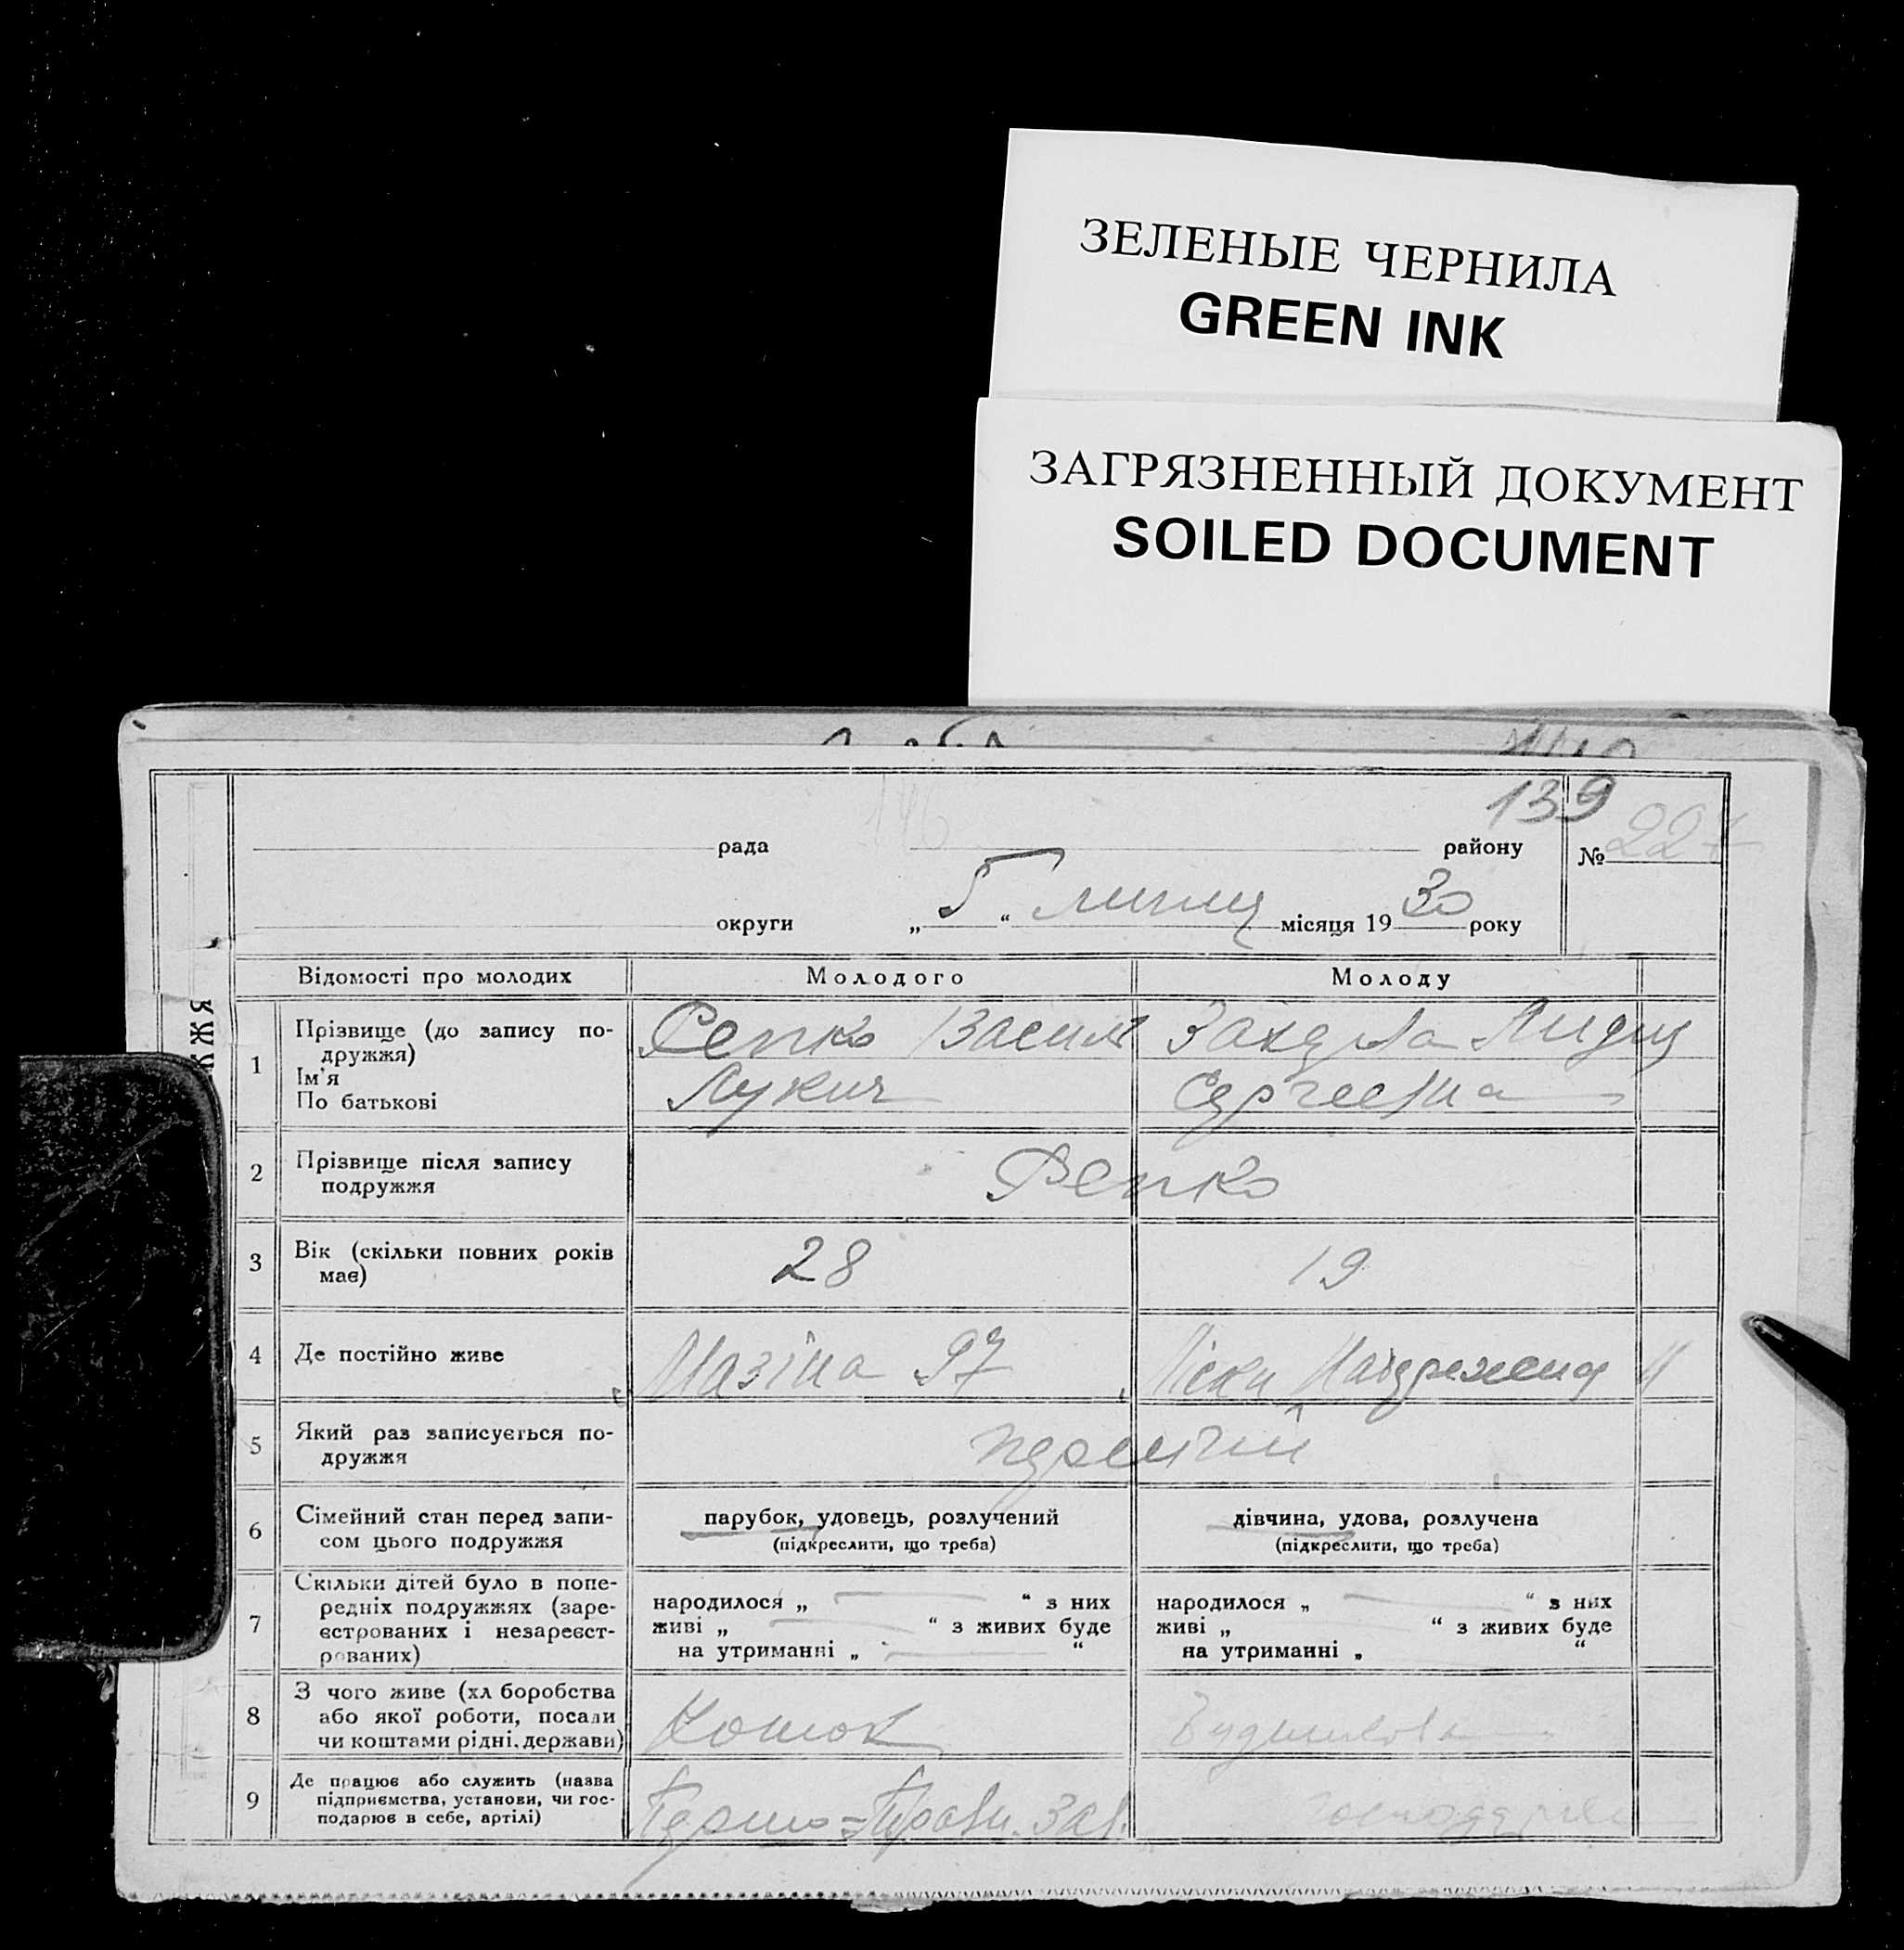 ЗЕЛЕНЫЕ ЧЕРНИЛА
GREEN INK
ЗАГРЯЗНЕННЫЙ ДОКУМЕНТ
SOILED DOCUMENT
139
рада району № 227
округи „5“ липня місяця 1930 року
ЖЖЯ
Відомості про молодих Молодого Молоду
1 Прізвище (до запису по-
дружжя)
Ім'я
По батькові
Репко Василь
Лукич
Лидия
Сергеевна
2 Прізвище після запису
подружжя
Репко
3 Вік (скільки повних років
має)
28 19
4 Де постійно живе
97
5 Який раз записується по-
дружжя
первый
6 Сімейний стан перед запи-
сом цього подружжя
парубок, удовець, розлучений
(підкреслити, що треба)
дівчина, удова, розлучена
(підкреслити, що треба)
7 Скільки дітей було в попе-
редніх подружжях (заре-
єстрованих і незареєст-
рованих)
народилося „ “ з них
живі „ “ з живих буде
на утриманні „ “
народилося „ “ з них
живі „ “ з живих буде
на утриманні „ “
8 З чого живе (хліборобства
або якої роботи, посади
чи коштами рідні, держави)
9 Де працює або служить (назва
підприємства, установи, чи гос-
подарює в себе, артілі)